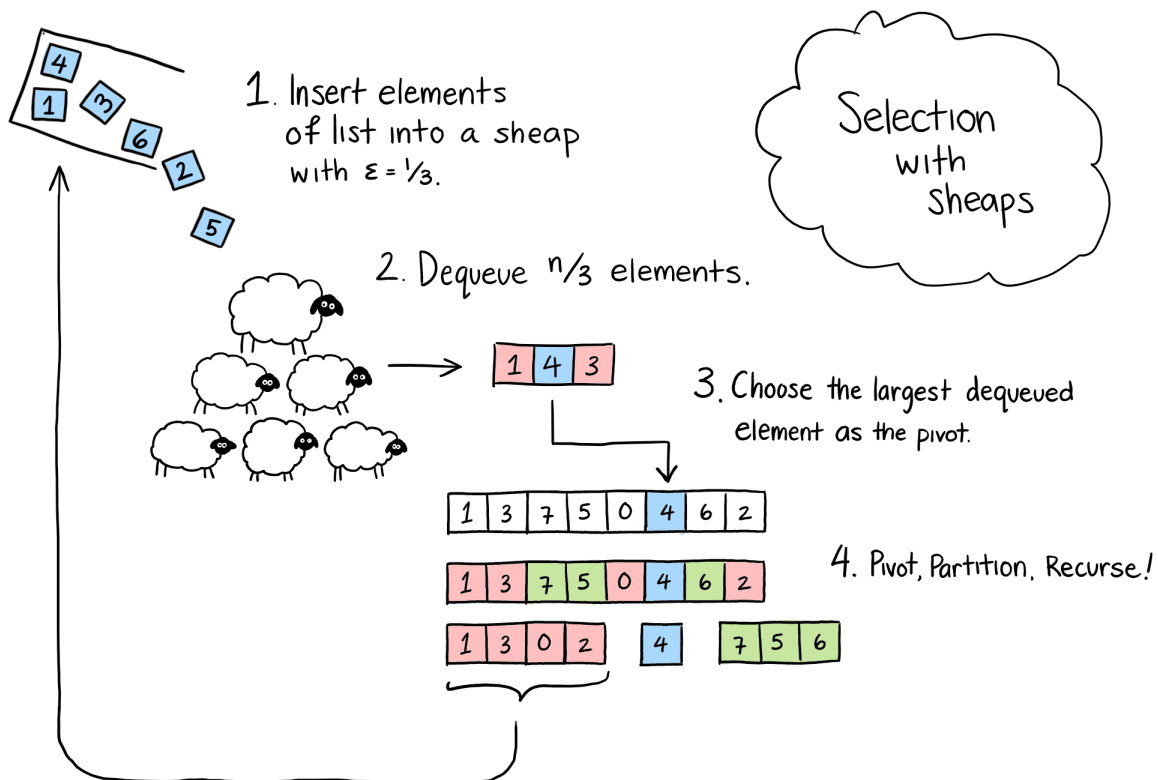 4
1
3
6
2
5
1. Insert elements
of list into a sheap
with ε = 1/3.
Selection
with
sheaps
2. Dequeue n/3 elements.
1 4 3
3. Choose the largest dequeued
element as the pivot.
1 3 7 5 0 4 6 2
4. Pivot, Partition, Recurse!
1 3 7 5 0 4 6 2
1 3 0 2 4 7 5 6